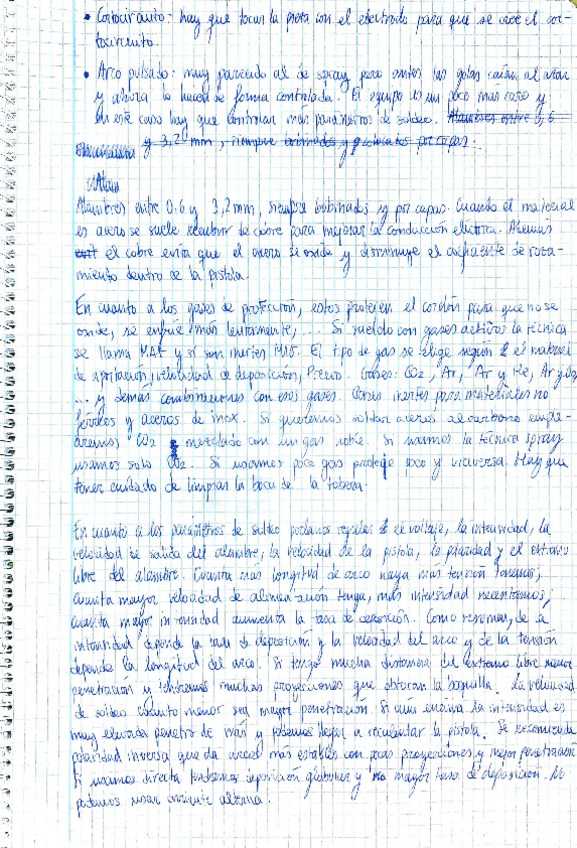 • Cortocircuito: hay que tocar la pieza con el electrodo para que se cree el cor-
tocircuito.
• Arco pulsado: muy parecido al de spray pero antes las gotas caían al azar
y ahora lo hacen de forma controlada. El equipo es un poco más caro y
en este caso hay que controlar más parámetros de soldeo. Alambres entre 0,6
y 3,2 mm, siempre bobinados y por capas.
Alambres entre 0.6 y 3,2mm, siempre bobinados y por capas. Cuando el material
es acero se suele recubrir de cobre para mejorar la conducción eléctrica. Además
el cobre evita que el acero se oxide y disminuye el coeficiente de roza-
miento dentro de la pistola.
En cuanto a los gases de protección, estos protegen el cordón para que no se
oxide, se enfríe más lentamente, ... Si sueldo con gases activos la técnica
se llama MAG y si son inertes MIG. El tipo de gas se elige según el material
de aportación, velocidad de deposición, Precio. Gases: CO2, Ar, Ar y He, Ar y O2
... y demás combinaciones con esos gases. Gases inertes para materiales no
férreos y aceros de inox. Si queremos soldar aceros al carbono emple-
aremos CO2 mezclado con un gas noble. Si usamos la técnica spray
usamos solo CO2. Si usamos poco gas protege poco y viceversa. Hay que
tener cuidado de limpiar la boca de la tobera.
En cuanto a los parámetros de soldeo podemos regular el voltaje, la intensidad, la
velocidad de salida del alambre, la velocidad de la pistola, la polaridad y el extremo
libre del alambre. Cuanta más longitud de arco haya más tensión tenemos,
cuanta mayor velocidad de alimentación tenga, más intensidad necesitamos,
cuanta mayor intensidad aumenta la tasa de deposición. Como resumen, de la
intensidad depende la tasa de deposición y la velocidad del arco y de la tensión
depende la longitud del arco. Si tengo mucha distancia del extremo libre menor
penetración y tendremos muchas proyecciones que obturan la boquilla. La velocidad
de soldeo cuanto menor sea mayor penetración. Si aun encima la intensidad es
muy elevada penetro de más y podemos llegar a recalentar la pistola. Se recomienda
polaridad inversa que da arcos más estables con pocas proyecciones y mejor penetración
Si usamos directa tendremos deposición globular y mayor tasa de deposición. No
podemos usar corriente alterna.